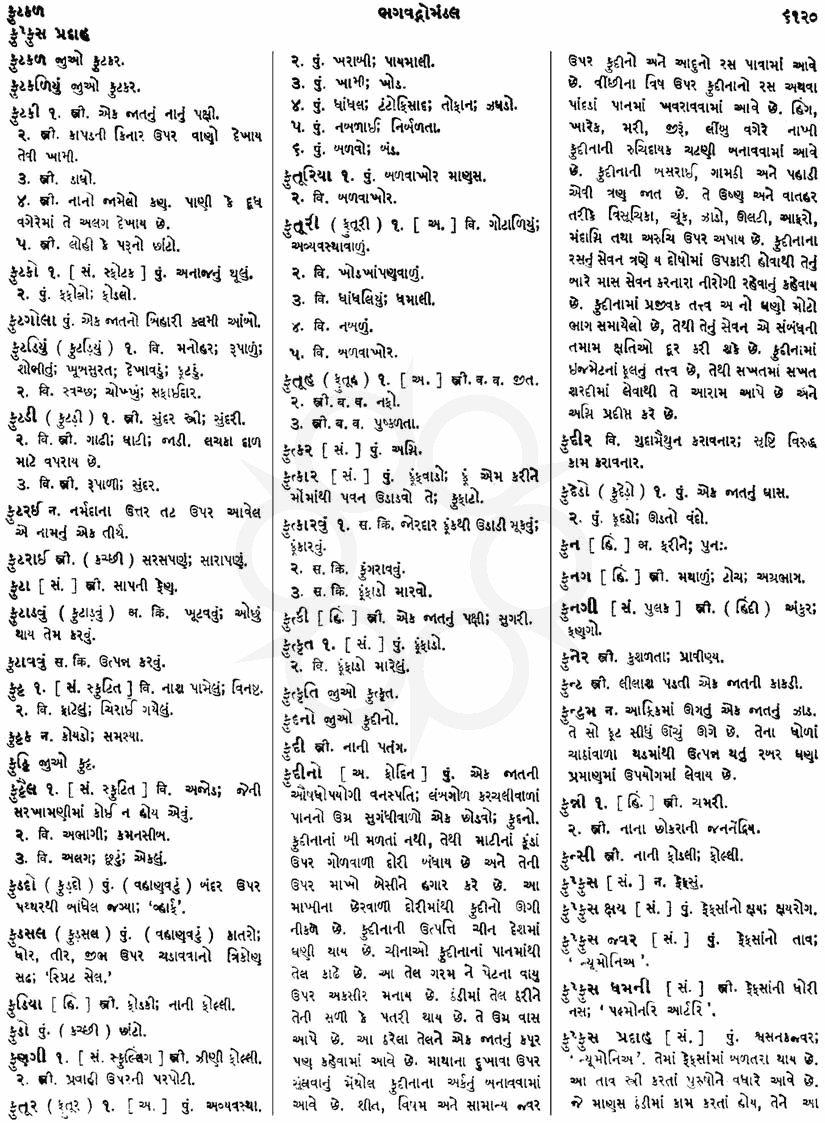 ફુટકળ
ભગવદ્ગોમંડલ
૬૧૨૦
ફુપ્ફુસ પ્રદાહ
ફુટકળ જુઓ ફુટકર.
ફુટકળિયું જુઓ ફુટકર.
ફુટકી ૧. સ્ત્રી. એક જાતનું નાનું પક્ષી.
૨. સ્ત્રી. કાપડની કિનાર ઉપર વાણો દેખાય
તેવી ખામી.
૩. સ્ત્રી. ડાઘો.
૪. સ્ત્રી. નાનો જામેલો કણ. પાણી કે દૂધ
વગેરેમાં તે અલગ દેખાય છે.
૫. સ્ત્રી. લોહી કે પરૂનો છાંટો.
ફુટકો ૧. [ સં. સ્ફોટક ] પું. અનાજનું થૂલું.
૨. પું. ફફોલો; ફોડલો.
ફુટગોલા પું. એક જાતનો બિહારી કલમી આંબો.
ફુટડિયું ( ફુટડિ઼યું ) ૧. વિ. મનોહર; રૂપાળું;
શોભીતું; ખૂબસુરત; દેખાવડું; ફૂટડું.
૨. વિ. સ્વચ્છ; ચોખ્ખું; સફાઈદાર.
ફુટડી ( ફુટડ઼ી ) ૧. સ્ત્રી. સુંદર સ્ત્રી; સુંદરી.
૨. વિ. સ્ત્રી. ગાઢી; ઘાટી; જાડી. લચકા દાળ
માટે વપરાય છે.
૩. વિ. સ્ત્રી. રૂપાળી; સુંદર.
ફુટરઈ ન. નર્મદાના ઉત્તર તટ ઉપર આવેલ
એ નામનું એક તીર્થ.
ફુટરાઈ સ્ત્રી. ( કચ્છી ) સરસપણું; સારાપણું.
ફુટા [ સં. ] સ્ત્રી. સાપની ફેણ.
ફુટાડવું ( ફુટાડ઼વું ) અ. ક્રિ. ખૂટવવું; ઓછું
થાય તેમ કરવું.
ફુટાવવું સ. ક્રિ. ઉત્પન્ન કરવું.
ફુટ્ટ ૧. [ સં. સ્ફુટિત ] વિ. નાશ પામેલું; વિનષ્ટ.
૨. વિ. ફાટેલું; ચિરાઈ ગયેલું.
ફુટ્ટક ન. કોયડો; સમસ્યા.
ફુટ્ટિ જુઓ ફુટ્ટ.
ફુટ્ટૈલ ૧. [ સં. સ્ફુટિત ] વિ. અજોડ; જેની
સરખામણીમાં કોઈ ન હોય એવું.
૨. વિ. અભાગી; કમનસીબ.
૩. વિ. અલગ; છૂટું; એકલું.
ફુડદો ( ફુડ઼દો ) પું. ( વહાણવટું ) બંદર ઉપર
પથ્થરથી બાંધેલ જગ્યા; ‘વ્હાર્ફ’.
ફુડસલ ( ફુડ઼સલ ) પું. ( વહાણવટું ) કાતરો;
ધોર, તીર, જીભ ઉપર ચડાવવાનો ત્રિકોણ
સઢ; ‘સ્પ્રિટ સેલ.’
ફુડિયા [ હિં. ] સ્ત્રી. ફોડકી; નાની ફોલ્લી.
ફુડો પું. ( કચ્છી ) છાંટો.
ફુણગી ૧. [ સં. સ્ફુલ્લિંગ ] સ્ત્રી. ઝીણી ફોલ્લી.
૨. સ્ત્રી. પ્રવાહી ઉપરની પરપોટી.
ફુતૂર ( ફ઼ુતૂર ) ૧. [ અ. ] પું. અવ્યવસ્થા.
૨. પું. ખરાબી; પાયમાલી.
૩. પું. ખામી; ખોડ.
૪. પું. ધાંધલ; ટંટોફિસાદ; તોફાન; ઝઘડો.
૫. પું. નબળાઈ નિર્બળતા.
૬. પું. બળવો; બંડ.
ફુતૂરિયા ૧. પું. બળવાખોર માણસ.
૨. વિ. બળવાખોર.
ફુતૂરી ( ફ઼ુતૂરી ) ૧. [ અ. ] વિ. ગોટાળિયું;
અવ્યવસ્થાવાળું.
૨. વિ. ખોડખાંપણવાળું.
૩. વિ. ધાંધલિયું; ધમાલી.
૪. વિ. નબળું.
૫. વિ. બળવાખોર.
ફુતૂહ ( ફ઼ુતૂહ઼ ) ૧. [ અ. ] સ્ત્રી. બ. વ. જીત.
૨. સ્ત્રી. બ. વ. નફો.
૩. સ્ત્રી. બ. વ. પુષ્કળતા.
ફુત્કર [ સં. ] પું. અગ્નિ.
ફુત્કાર [ સં. ] પું. ફૂંકવાડો; ફૂં એમ કરીને
મોંમાંથી પવન ઉડાડવો તે; ફુફાટો.
ફુત્કારવું ૧. સ. ક્રિ. જોરદાર ફૂંકથી ઉડાડી મૂકવું;
ફૂંકારવું.
૨. સ. ક્રિ. ફુંગરાવવું.
૩. સ. ક્રિ. ફૂંફાડો મારવો.
ફુત્કી [ હિં. ] સ્ત્રી. એક જાતનું પક્ષી; સુગરી.
ફુત્કૃત ૧. [ સં. ] પું. ફૂંફાડો.
૨. વિ. ફૂંફાડો મારેલું.
ફુત્કૃતિ જુઓ ફુત્કૃત.
ફુદનો જુઓ ફુદીનો.
ફુદી સ્ત્રી. નાની પતંગ.
ફુદીનો [ અ. ફોદિન ] પું. એક જાતની
ઔષધોપયોગી વનસ્પતિ; લંબગોળ કરચલીવાળાં
પાનનો ઉગ્ર સુગંધીવાળો એક છોડવો; ફુદનો.
ફુદીનાનાં બી મળતાં નથી, તેથી માટીનાં કૂંડાં
ઉપર ગોળવાળી દોરી બંધાય છે અને તેની
ઉપર માખો બેસીને હગાર કરે છે. આ
માખીના છેરવાળી દોરીમાંથી ફુદીનો ઊગી
નીકળે છે. ફુદીનાની ઉત્પત્તિ ચીન દેશમાં
ઘણી થાય છે. ચીનાઓ ફુદીનાનાં પાનમાંથી
તેલ કાઢે છે. આ તેલ ગરમ ને પેટના વાયુ
ઉપર અકસીર મનાય છે. ઠંડીમાં તેલ ઠરીને
તેની સળી કે પતરી થાય છે. તે ઉગ્ર વાસ
આપે છે. આ ઠરેલા તેલને એક જાતનું કપૂર
પણ કહેવામાં આવે છે. માથાના દુખાવા ઉપર
મૂલવાનું મેંથોલ ફુદીનાના અર્કનું બનાવવામાં
આવે છે. શીત, વિષમ અને સામાન્ય જ્વર
ઉપર ફુદીનો અને આદુનો રસ પાવામાં આવે
છે. વીંછીના વિષ ઉપર ફુદીનાનો રસ અથવા
પાંદડાં પાનમાં ખવરાવવામાં આવે છે. હિંગ,
ખારેક, મરી, જીરૂં, લીંબુ વગેરે નાખી
ફુદીનાની રુચિદાયક ચટણી બનાવવામાં આવે
છે. ફુદીનાની બસરાઈ, ગામડી અને પહાડી
એવી ત્રણ જાત છે. તે ઉષ્ણ અને વાતહર
તરીકે વિસૂચિકા, ચૂંક, ઝાડો, ઊલટી, આફરો,
મંદાગ્નિ તથા અરુચિ ઉપર અપાય છે. ફુદીનાના
રસનું સેવન ત્રણે ય દોષોમાં ઉપકારી હોવાથી તેનું
બારે માસ સેવન કરનારા નીરોગી રહેવાનું કહેવાય
છે. ફુદીનામાં પ્રજીવક તત્ત્વ અ નો ઘણો મોટો
ભાગ સમાયેલો છે, તેથી તેનું સેવન એ સંબંધની
તમામ ક્ષતિઓ દૂર કરી શકે છે. ફુદીનામાં
ઇજમેટનાં ફૂલનું તત્ત્વ છે, તેથી સખતમાં સખત
શરદીમાં લેવાથી તે આરામ આપે છે અને
અગ્નિ પ્રદીપ્ત કરે છે.
ફુદીર વિ. ગુદામૈથુન કરાવનાર; સૃષ્ટિ વિરુદ્ધ
કામ કરાવનાર.
ફુદેડો ( ફુદેડ઼ો ) ૧. પું. એક જાતનું ઘાસ.
૨. પું. ફૂદડો; ઊડતો વંદો.
ફુન [ હિં. ] અ. ફરીને; પુનઃ.
ફુનગ [ હિં. ] સ્ત્રી. મથાળું; ટોચ; અગ્રભાગ.
ફુનગી [ સં. પુલક ] સ્ત્રી. ( હિંદી ) અંકુર;
ફણગો.
ફુનેર સ્ત્રી. કુશળતા; પ્રાવીણ્ય.
ફુન્ટ સ્ત્રી. લીલાશ પડતી એક જાતની કાકડી.
ફુન્ટુમ ન. આફ્રિકામાં ઊગતું એક જાતનું ઝાડ.
તે સો ફૂટ સીધું ઊંચું ઊગે છે. તેના ધોળાં
ચાઠાંવાળા થડમાંથી ઉત્પન્ન થતું રબર ઘણા
પ્રમાણમાં ઉપયોગમાં લેવાય છે.
ફુન્ની ૧. [ હિં. ] સ્ત્રી. ચમરી.
૨. સ્ત્રી. નાના છોકરાની જનનેંદ્રિય.
ફુન્સી સ્ત્રી. નાની ફોડલી; ફોલ્લી.
ફુપ્ફુસ [ સં. ] ન. ફેફસું.
ફુપ્ફુસ ક્ષય [ સં. ] પું. ફેફસાંનો ક્ષય; ક્ષયરોગ.
ફુપ્ફુસ જ્વર [ સં. ] પું. ફેફસાંનો તાવ;
‘ ન્યૂમોનિઅ ’.
ફુપ્ફુસ ધમની [ સં. ] સ્ત્રી. ફેફસાંની ધોરી
નસ; ‘ પલ્મોનરિ આર્ટરિ ’.
ફુપ્ફુસ પ્રદાહ [ સં. ] પું. શ્વસનકજ્વર;
‘ ન્યૂમોનિઅ ’. તેમાં ફેફસાંમાં બળતરા થાય છે.
આ તાવ સ્ત્રી કરતાં પુરુષોને વધારે આવે છે.
જે માણસ ઠંડીમાં કામ કરતાં હોય, તેને આ